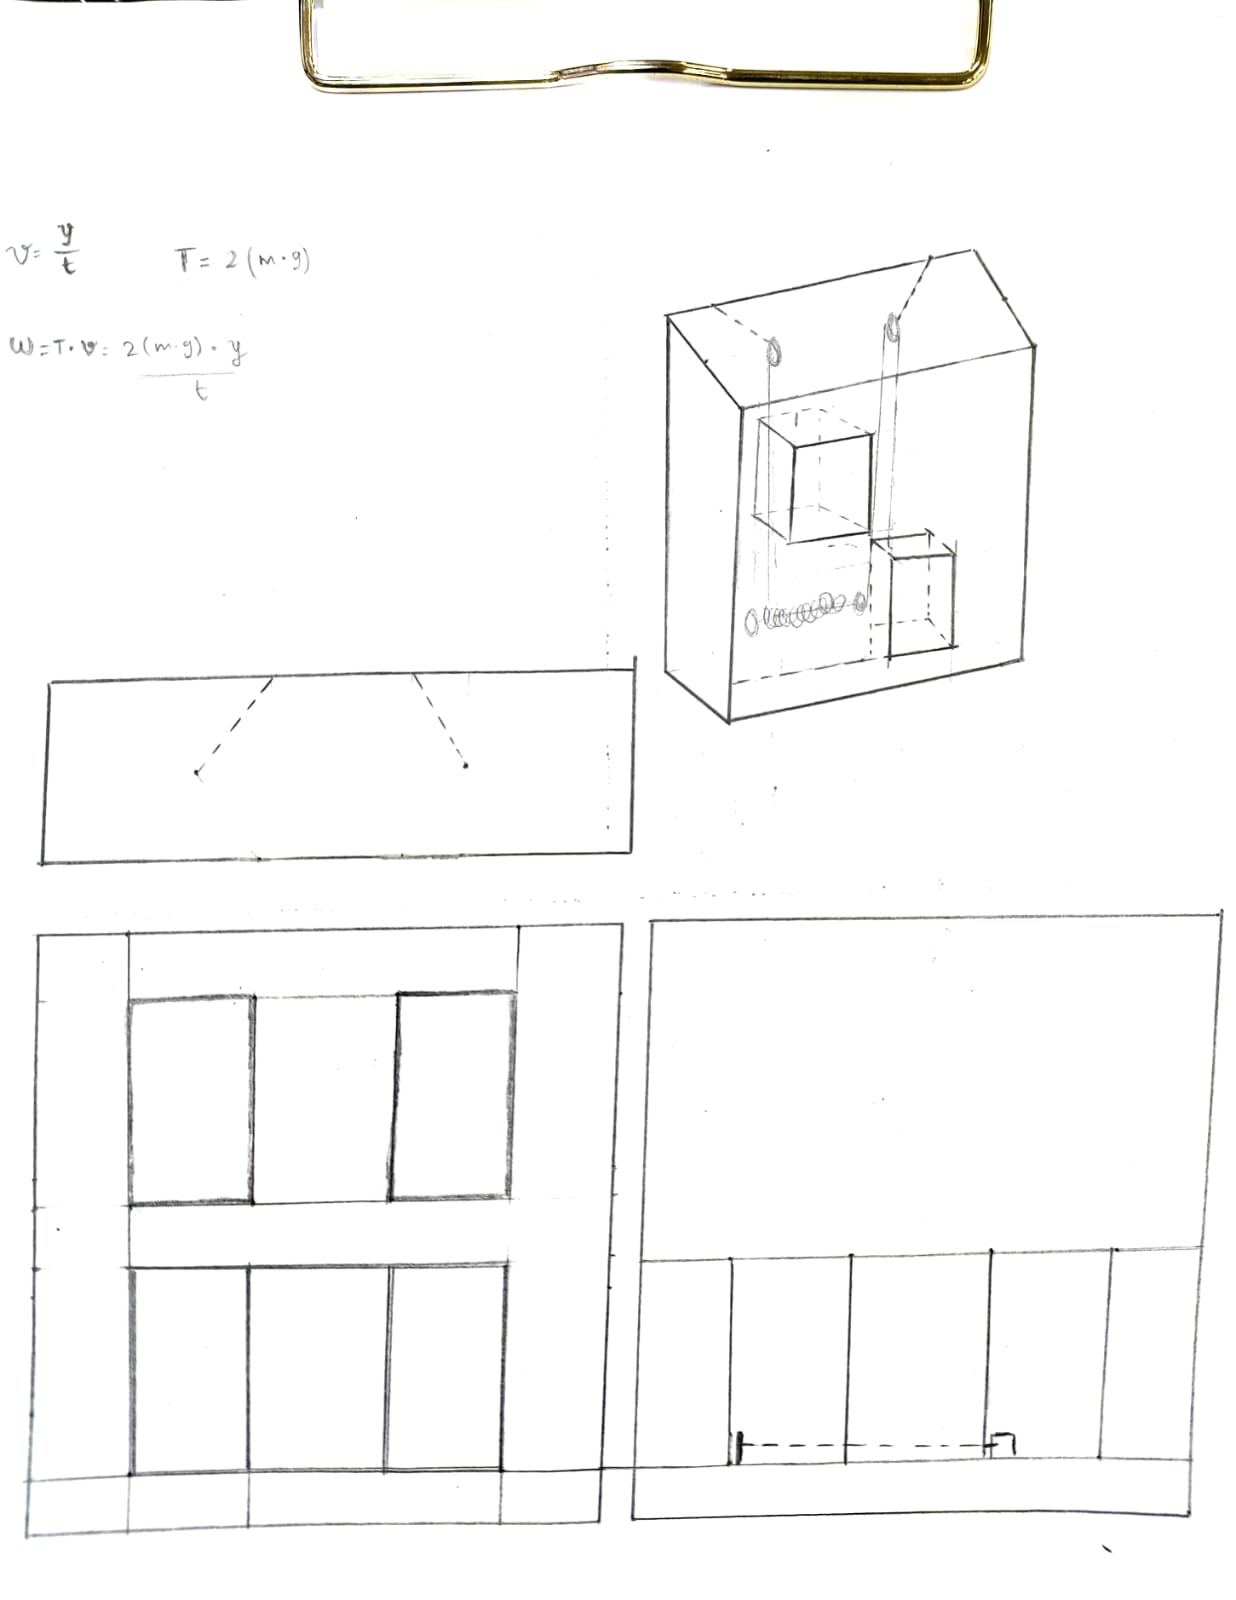 v= y/t T= 2(m·g)
W=T·v= 2(m·g)·y/t